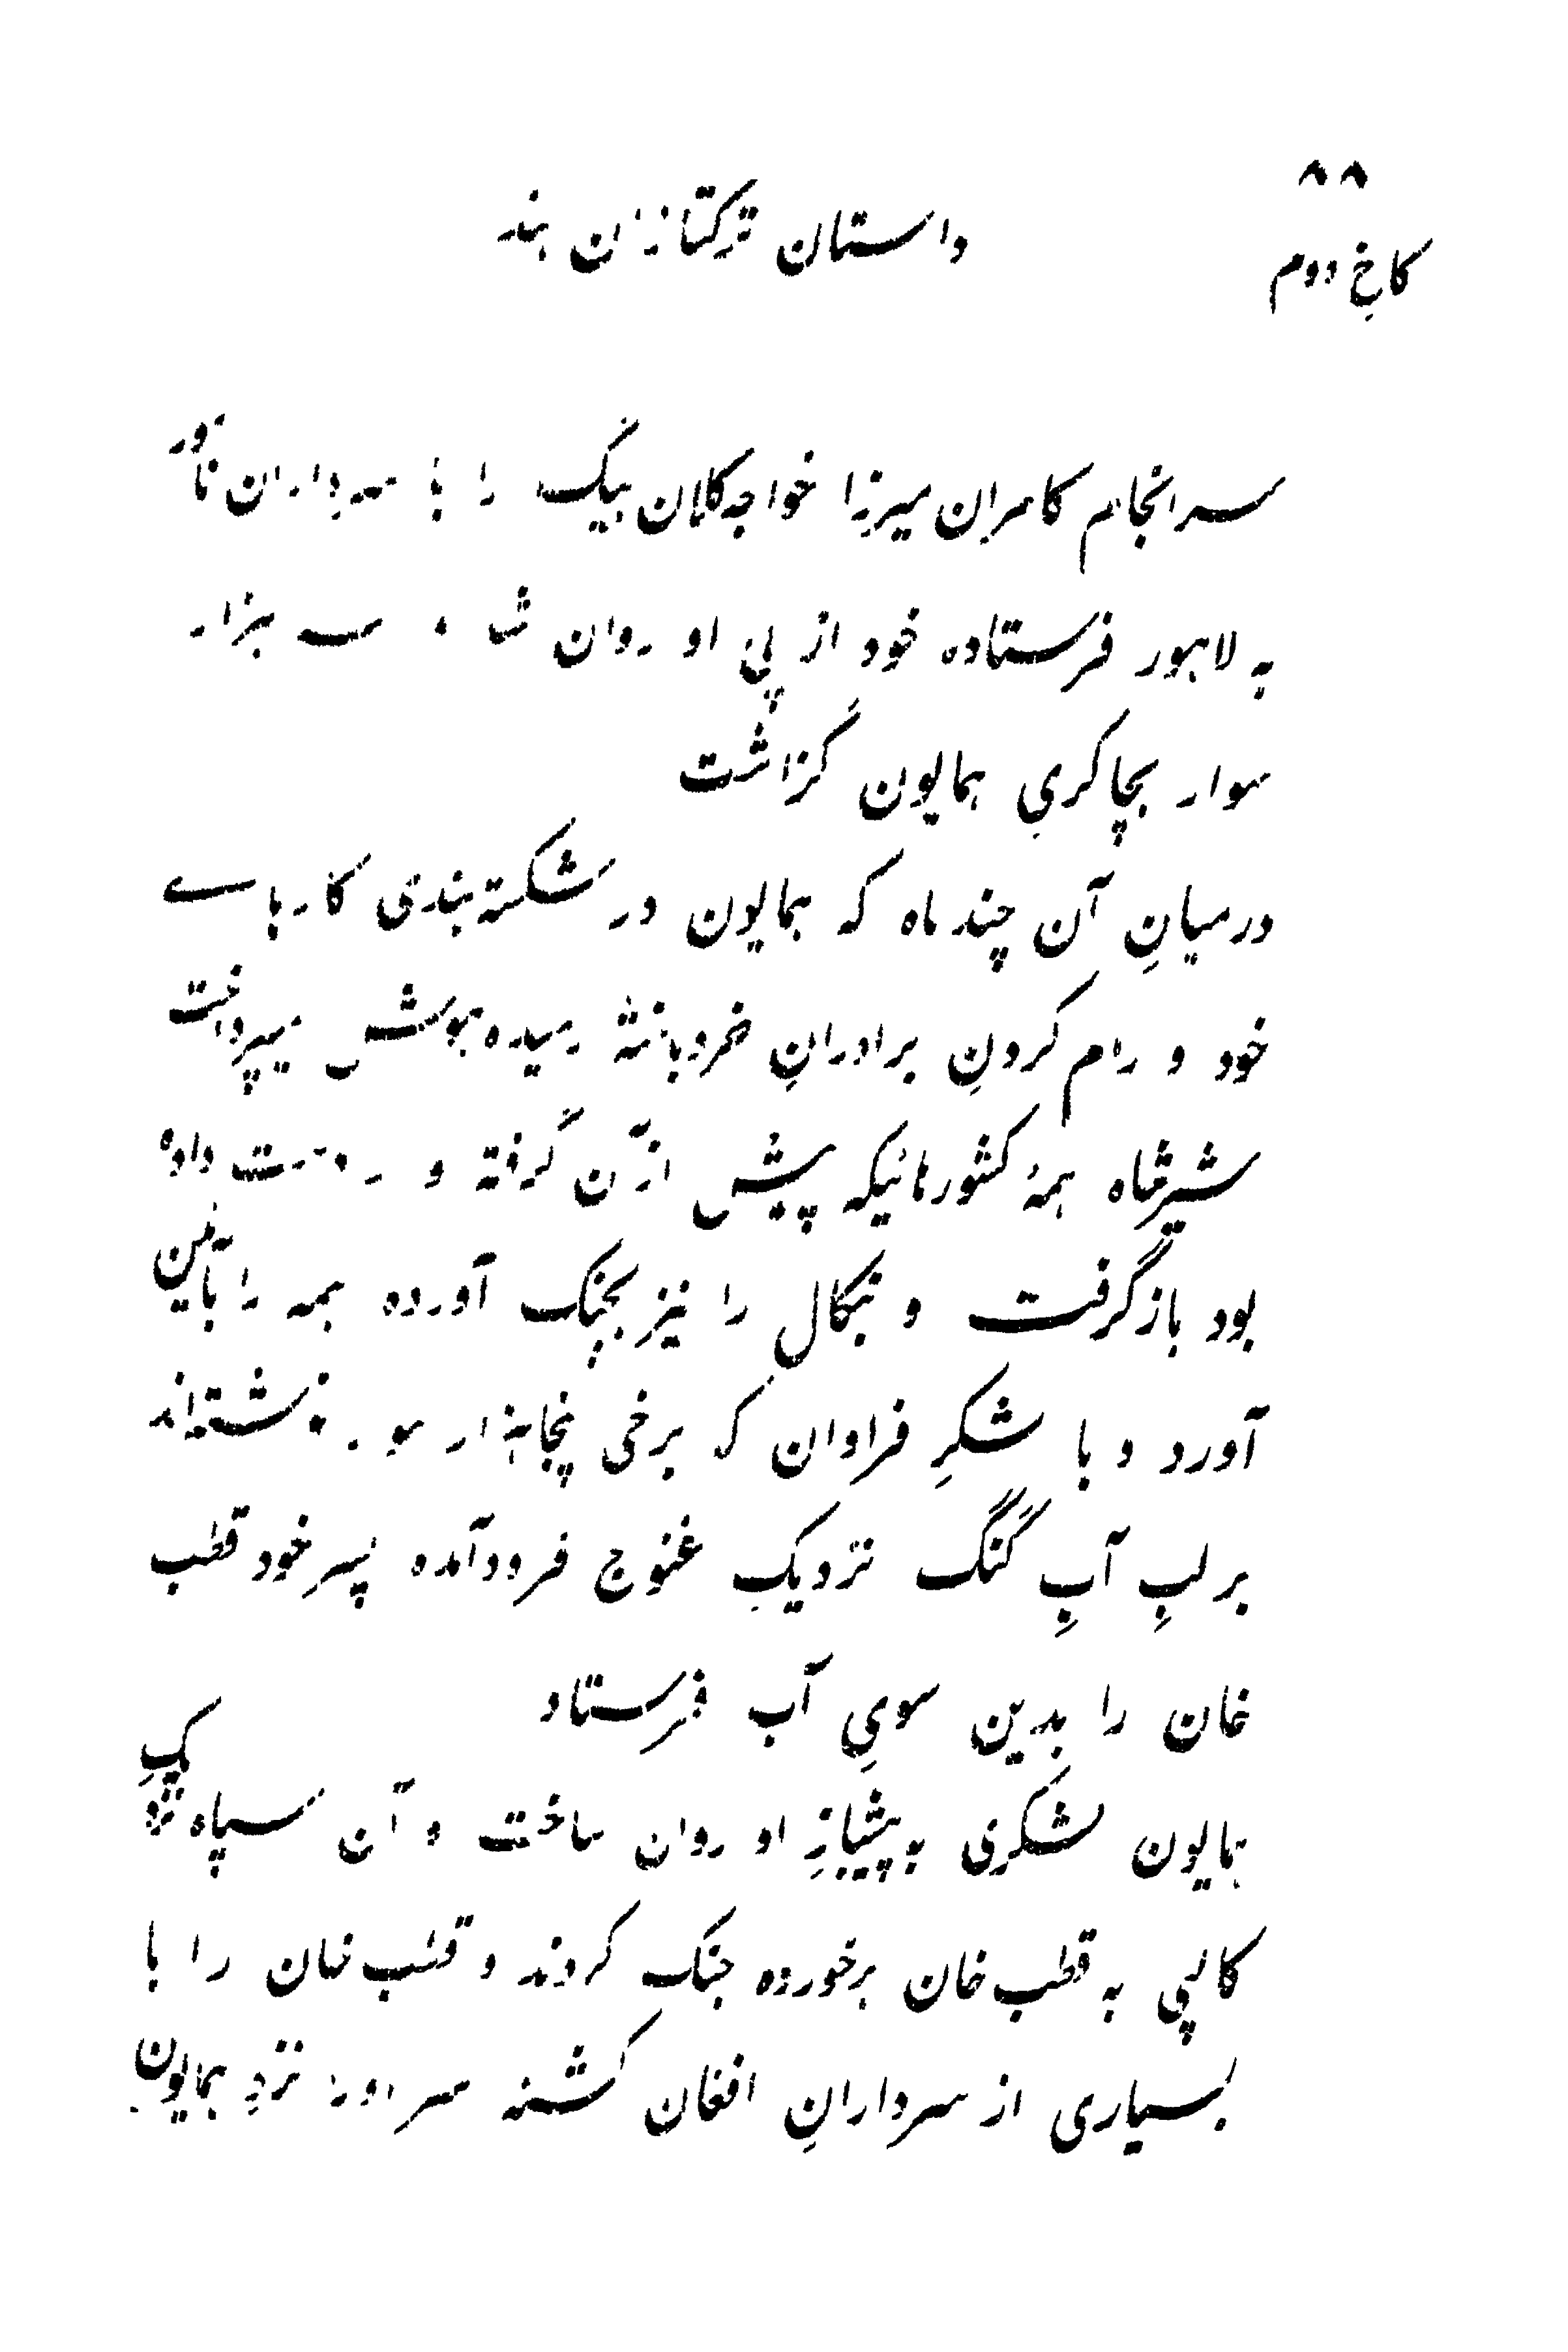 ۸۸
داستان ترکتازان هند
کاخِ دوم
سرانجام کامران میرزا خواجه کلان بیگ را با سرداران
به لاهور فرستاده خود از پی او روان شد سه هزار
سوار بچاکریِ همایون گزاشت
درمیانِ آن چند ماه که همایون در شکسته بندی کارهاے
خود و رام کردنِ برادرانِ رمیده هوش میپرداخت
شیرشاه همهٔ کشورهائیکه پیش ازآن گرفته و دست داده
بود بازگرفت و بنگال را نیز بچنگ آورده همه را بآئین
آورد و با لشکرِ فراوان که برخی پنجاه هزار نوشته‌اند
بر لبِ آبِ گنگ نزدیکِ غنوج فرودآمده پسرِ خود قطب
خان را بدین سویِ آب فرستاد
همایون لشکری به پیشبازِ او روان ساخت و آن سپاه نزدیکِ
کالپی به قطب خان برخورده جنگ کردند و قطب خان را با
بسیاری از سردارانِ افغان کشته سر اورا نزدِ همایون